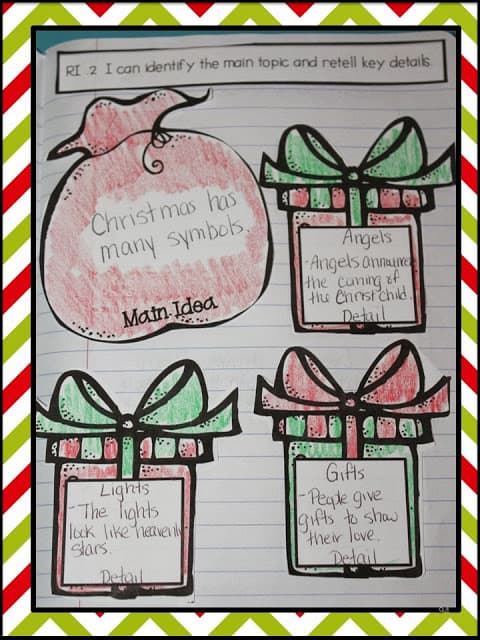 RI .2 I can identify the main topic and retell key details.
Christmas has
many symbols.
Main Idea
Angels
-Angels announce
the coming of
the Christ child.
Detail
Lights
-The lights
look like heavenly
stars.
Detail
Gifts
-People give
gifts to show
their love.
Detail